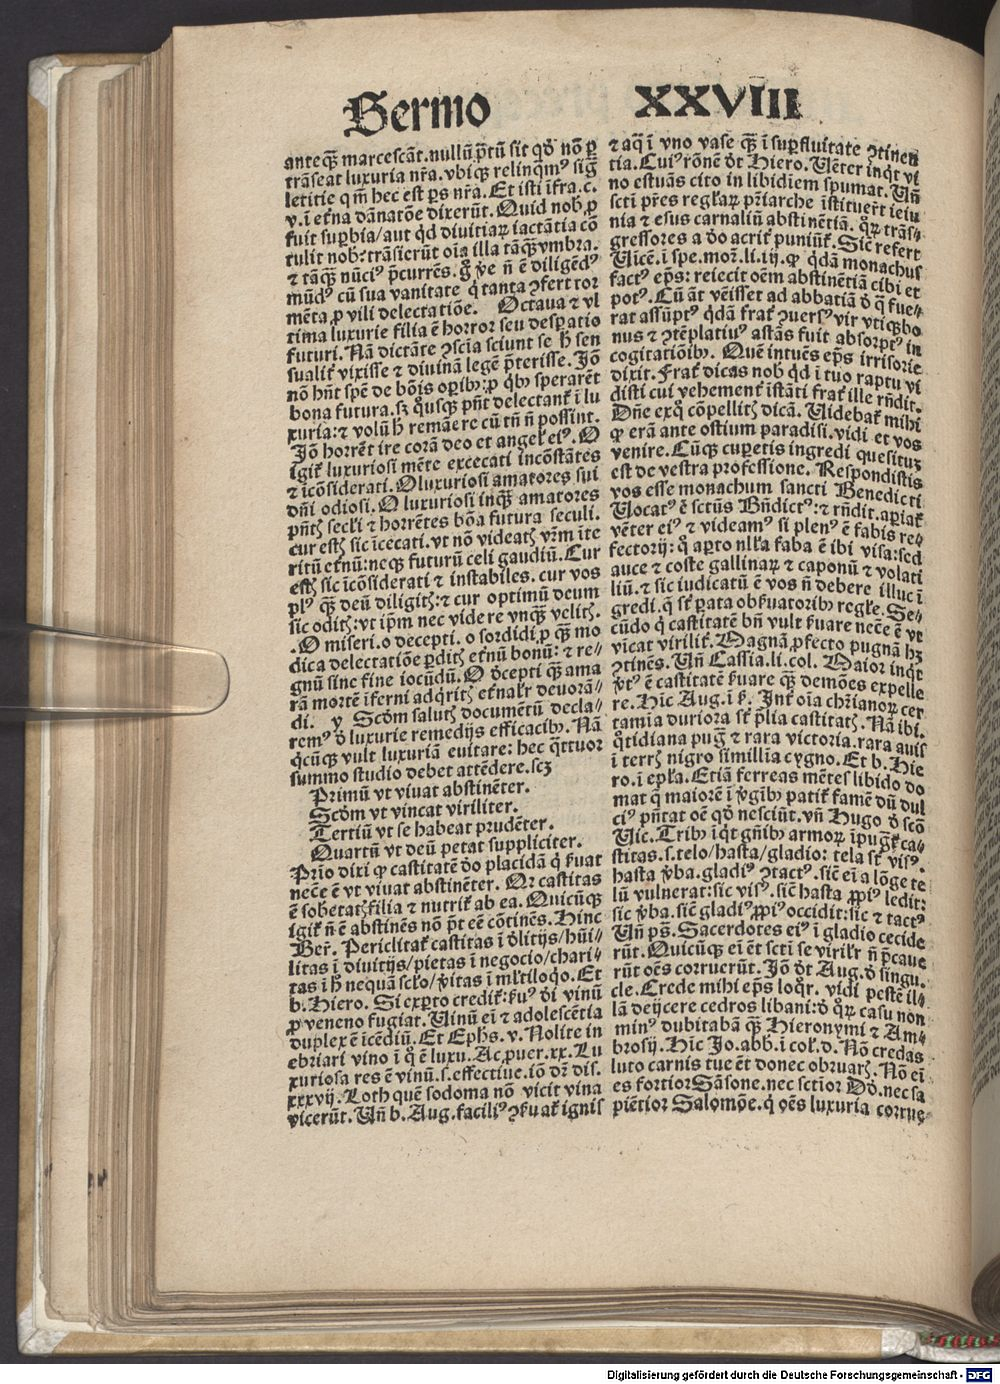 Sermo XXVIII
anteq̃ marcescãt. nullũ p̃tũ sit qđ nõ ꝑ
trãseat luxuria nr̃a. vbiqꝫ relinqm᷒ sig̃
letitie qm̃ hec est ꝑs nr̃a. Et isti ĩfra. c.
v. ĩ et̃na dãnatõe dixerũt. Quid nob̃ ꝓ
fuit suꝑbia/aut qđ diuitiaꝝ iactãtia cõ
tulit nob̃? trãsierũt oĩa illa tãqꝫ vmbra.
⁊ tãqꝫ nũci᷒ p̃currẽs. g̊ ṽe ñ ẽ diligẽd᷒
mũd᷒ cũ sua vanitate q̇ tanta ꝯfert tor
mẽta ꝓ vili delectatiõe. Octaua ⁊ vl
tima luxurie filia ẽ horror seu desꝑatio
futuri. Nã dictãte ꝯscĩa sciunt se h̃ sen
sualit̃ vixisse ⁊ diuinã legẽ p̃terisse. Jõ
nõ hñt spẽ de bõis oꝑibꝫ: ꝓ qbꝫ sperarẽt
bona futura. sꝫ q̊usqꝫ pñt delectant̃ ĩ lu
xuria: ⁊ volũ h̃ remãere cũ tñ ñ possint.
Jõ horrẽt ire corã deo et angel̃ ei᷒. O
igit̃ luxuriosi mẽte excecati incõstãtes
⁊ icõsiderati. O luxuriosi amatores sui
dñi odiosi. O luxuriosi inq̃ꝫ amatores
pñtꝭ secl̃i ⁊ horrẽtes bõa futura seculi.
cur estꝭ sic icecati. vt nõ videatꝭ vr̃m ĩte
ritũ et̃nũ: neqꝫ futurũ celi gaudiũ. Cur
estꝭ sic icõsiderati ⁊ instabiles. cur vos
pl᷒ q̃ꝫ deũ diligitꝭ: ⁊ cur optimũ deum
sic oditꝭ: vt ip̃m nec videre vnq̃ꝫ velitꝭ.
. O miseri. o decepti. o sordidi. ꝓ q̃ꝫ mo
dica delectatiõe ꝑditꝭ et̃nũ bonũ: ⁊ re⸗
gnũ sine fine iocũdũ. O d̾cepti q̃ꝫ ama
rã mortẽ ĩferni adq̇ritꝭ et̃nal̃r deuorã⸗
di. y Scđm salutꝭ documẽtũ decla⸗
rem᷒ đ luxurie remedijs efficacibꝫ. Nã
q̇cũqꝫ vult luxuriã euitare: hec q̃ttuor
summo studio debet attẽdere. scꝫ
Primũ vt viuat abstinẽter.
Scđm vt vincat viriliter.
Tertiũ vt se habeat prudẽter.
Quartũ vt deũ petat suppliciter.
Prĩo dixi ꝙ castitatẽ đo placidã q̇ ẜuat
necẽ ẽ vt viuat abstinẽter. Qꝛ castitas
ẽ sob̾etatꝭ filia ⁊ nutrit̃ ab ea. Quicũqꝫ
igit̃ ñ ẽ abstinẽs nõ p̃t eẽ cõtinẽs. Hinc
Ber̃. Periclitat̃ castitas ĩ đlitijs/hũi⸗
litas ĩ diuitijs/pietas ĩ negocio/chari⸗
tas ĩ h̃ nequã scl̃o/v̾itas ĩ ml̃tiloqo. Et
b. Hiero. Si exꝑto credit̃: ẜu᷒ đi vinũ
ꝓ veneno fugiat. Uinũ eĩ ⁊ adolescẽtia
duplex ẽ icẽdiũ. Et Ephs. v. Nolite in
ebriari vino ĩ q̊ ẽ luxu. Ac ꝓuer. xx. Lu
xuriosa res ẽ vinũ. s. effectiue. iõ dr̃ dis.
xxxvij. Loth quẽ sodoma nõ vicit vina
vicerũt. Uñ b. Aug. facili᷒ ꝯẜuat̃ ignis
⁊ aq̃ ĩ vno vase q̃ꝫ ĩ suꝑfluitate ꝯtinen
tia. Cui᷒ rõnẽ đt Hiero. Uẽter inq̇t vi
no estuãs cito in libidiẽm spumat. Uñ
scti p̃res regl̃aꝝ p̃riarche istituer̃t ieiu
nia ⁊ esus carnaliũ abstinẽtiã. q̊ꝝ trãs⸗
gressores a đo acrit̃ puniũt̃. Sic̃ refert
Uicẽ. ĩ spe. moꝛ. li. iij. ꝙ q̇dã monachus
fact᷒ ep̃s: reiecit oẽm abstinẽtiã cibi et
pot᷒. Cũ ãt vẽisset ad abbatiã đ q̃ fue⸗
rat assũpt᷒ q̇dã frat̃ ꝯuers᷒ vir vtiqꝫ bo
nus ⁊ ꝯtẽplatiu᷒ astãs fuit absorpt᷒ in
cogitatiõibꝫ. Quẽ intuẽs ep̃s irrisorie
dixit. Frat̃ dicas nob̃ qđ ĩ tuo raptu vi
disti cui vehement̃ istãti frat̃ ille rñdit.
Dñe exq̊ cõpellitꝭ dicã. Uidebat̃ mihi
ꝙ erã ante ostium paradisi. vidi et vos
venire. Cũqꝫ cuꝑetis ingredi quesitũ
est de vestra professione. Respondistis
vos esse monachum sancti Benedicti
Uocat᷒ ẽ sctũs Bñdict᷒: ⁊ rñdit. aꝑiat̃
vẽter ei᷒ ⁊ videam᷒ si plen᷒ ẽ fabis re⸗
fectorij: q̊ aꝑto nl̃la faba ẽ ibi visa: sed
auce ⁊ coste gallinaꝝ ⁊ caponũ ⁊ volati
liũ. ⁊ sic iudicatũ ẽ vos ñ debere illuc ĩ
gredi. q̇ st̃ ꝑata obẜuatoribꝫ regl̃e. Se⸗
cũdo q̇ castitatẽ bñ vult ẜuare necẽ ẽ vt
vicat virilit̃. Magnã ꝓfecto pugnã hꝫ
ꝯtinẽs. Uñ Cassia. li. col. Maior inq̇t
v̾t᷒ ẽ castitatẽ ẜuare q̃ꝫ demões expelle
re. Hic Aug. ĩ ẜ. Int̃ oĩa chr̃ianoꝝ cer
tamĩa duriora st̃ p̃lia castitatꝭ. Nã ibi.
q̊tidiana pug̃ ⁊ rara victoria. rara auis
ĩ terrꝭ nigro simillĩa cygno. Et b. Hie
ro. ĩ epl̃a. Etiã ferreas mẽtes libido do
mat q̇ maiorẽ ĩ v̾gĩbꝫ patit̃ famẽ dũ dul
ci᷒ pũtat oẽ qđ nesciũt. vñ Hugo đ scõ
Uic. Tribꝫ iq̇t gñibꝫ armoꝝ ĩpug̃t̃ ca⸗
stitas. s. telo/hasta/gladio: tela st̃ vis᷒.
hasta v̾ba. gladi᷒ ꝯtact᷒. sic̃ eĩ a lõge te
lũ vulnerat: sic vis᷒. sic̃ hasta ꝓpi᷒ ledit:
sic v̾ba. sic̃ gladi᷒ ꝓpi᷒ occidit: sic ⁊ tact᷒
Uñ ps̃. Sacerdotes ei᷒ ĩ gladio cecide
rũt. Quicũqꝫ eĩ ẽt sctĩ se viril̃r ñ p̃caue
rũt oẽs corruerũt. Jõ đt Aug. đ singu.
cle. Crede mihi ep̃s loqr̃. vidi pestẽ il⸗
lã deijcere cedros libani: đ q̊ꝝ casu non
min᷒ dubitabã q̃ꝫ Hieronymi ⁊ Am⸗
brosij. Hic Jo. abb. ĩ col̃. d. Nõ credas
luto carnis tue ẽt donec obruarꝭ. Nõ eĩ
es fortior Sãsone. nec sctior Đđ. nec sa
piẽtior Salomõe. q̇ oẽs luxuria corrue⸗
Digitalisierung gefördert durch die Deutsche Forschungsgemeinschaft - DFG